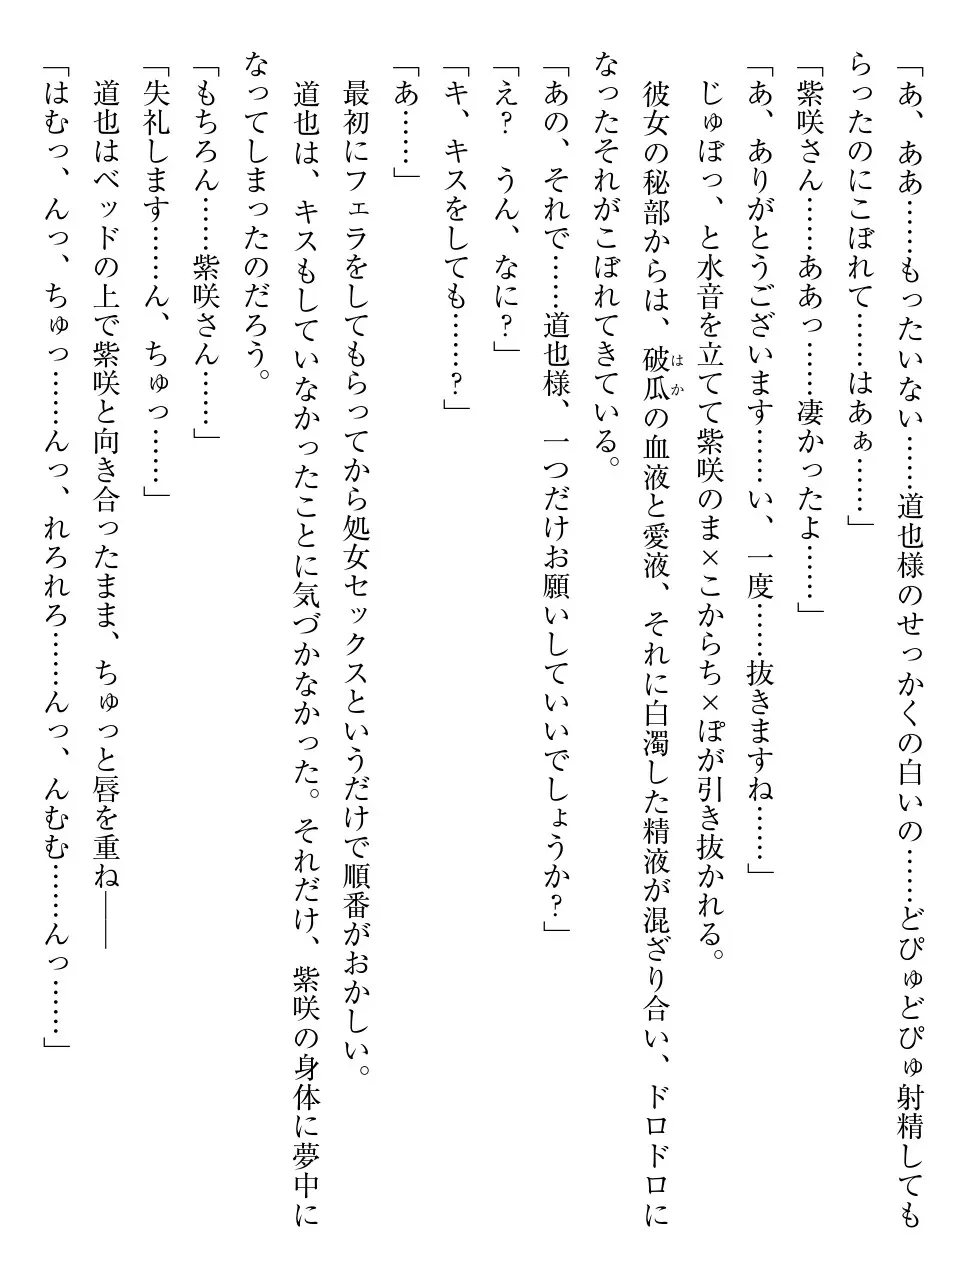 「あ、ああ……もったいない……道也様のせっかくの白いの……どぴゅどぴゅ射精しても
らったのにこぼれて……はあぁ……」
「紫咲さん……ああっ……凄かったよ……」
「あ、ありがとうございます……い、一度……抜きますね……」
じゅぼっ、と水音を立てて紫咲のま×こからち×ぽが引き抜かれる。
彼女の秘部からは、破瓜の血液と愛液、それに白濁した精液が混ざり合い、ドロドロに
はか
なったそれがこぼれてきている。
「あの、それで……道也様、一つだけお願いしていいでしょうか?」
「え?　うん、なに?」
「キ、キスをしても……?」
「あ……」
最初にフェラをしてもらってから処女セックスというだけで順番がおかしい。
道也は、キスもしていなかったことに気づかなかった。それだけ、紫咲の身体に夢中に
なってしまったのだろう。
「もちろん……紫咲さん……」
「失礼します……ん、ちゅっ……」
道也はベッドの上で紫咲と向き合ったまま、ちゅっと唇を重ね――
「はむっ、んっ、ちゅっ……んっ、れろれろ……んっ、んむむ……んっ……」